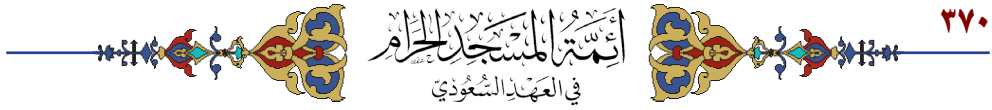 ٣٧٠
أَئِمَّةُ المَسْجِدِ الحَرَامِ
في العَهْدِ السُّعُودِيّ